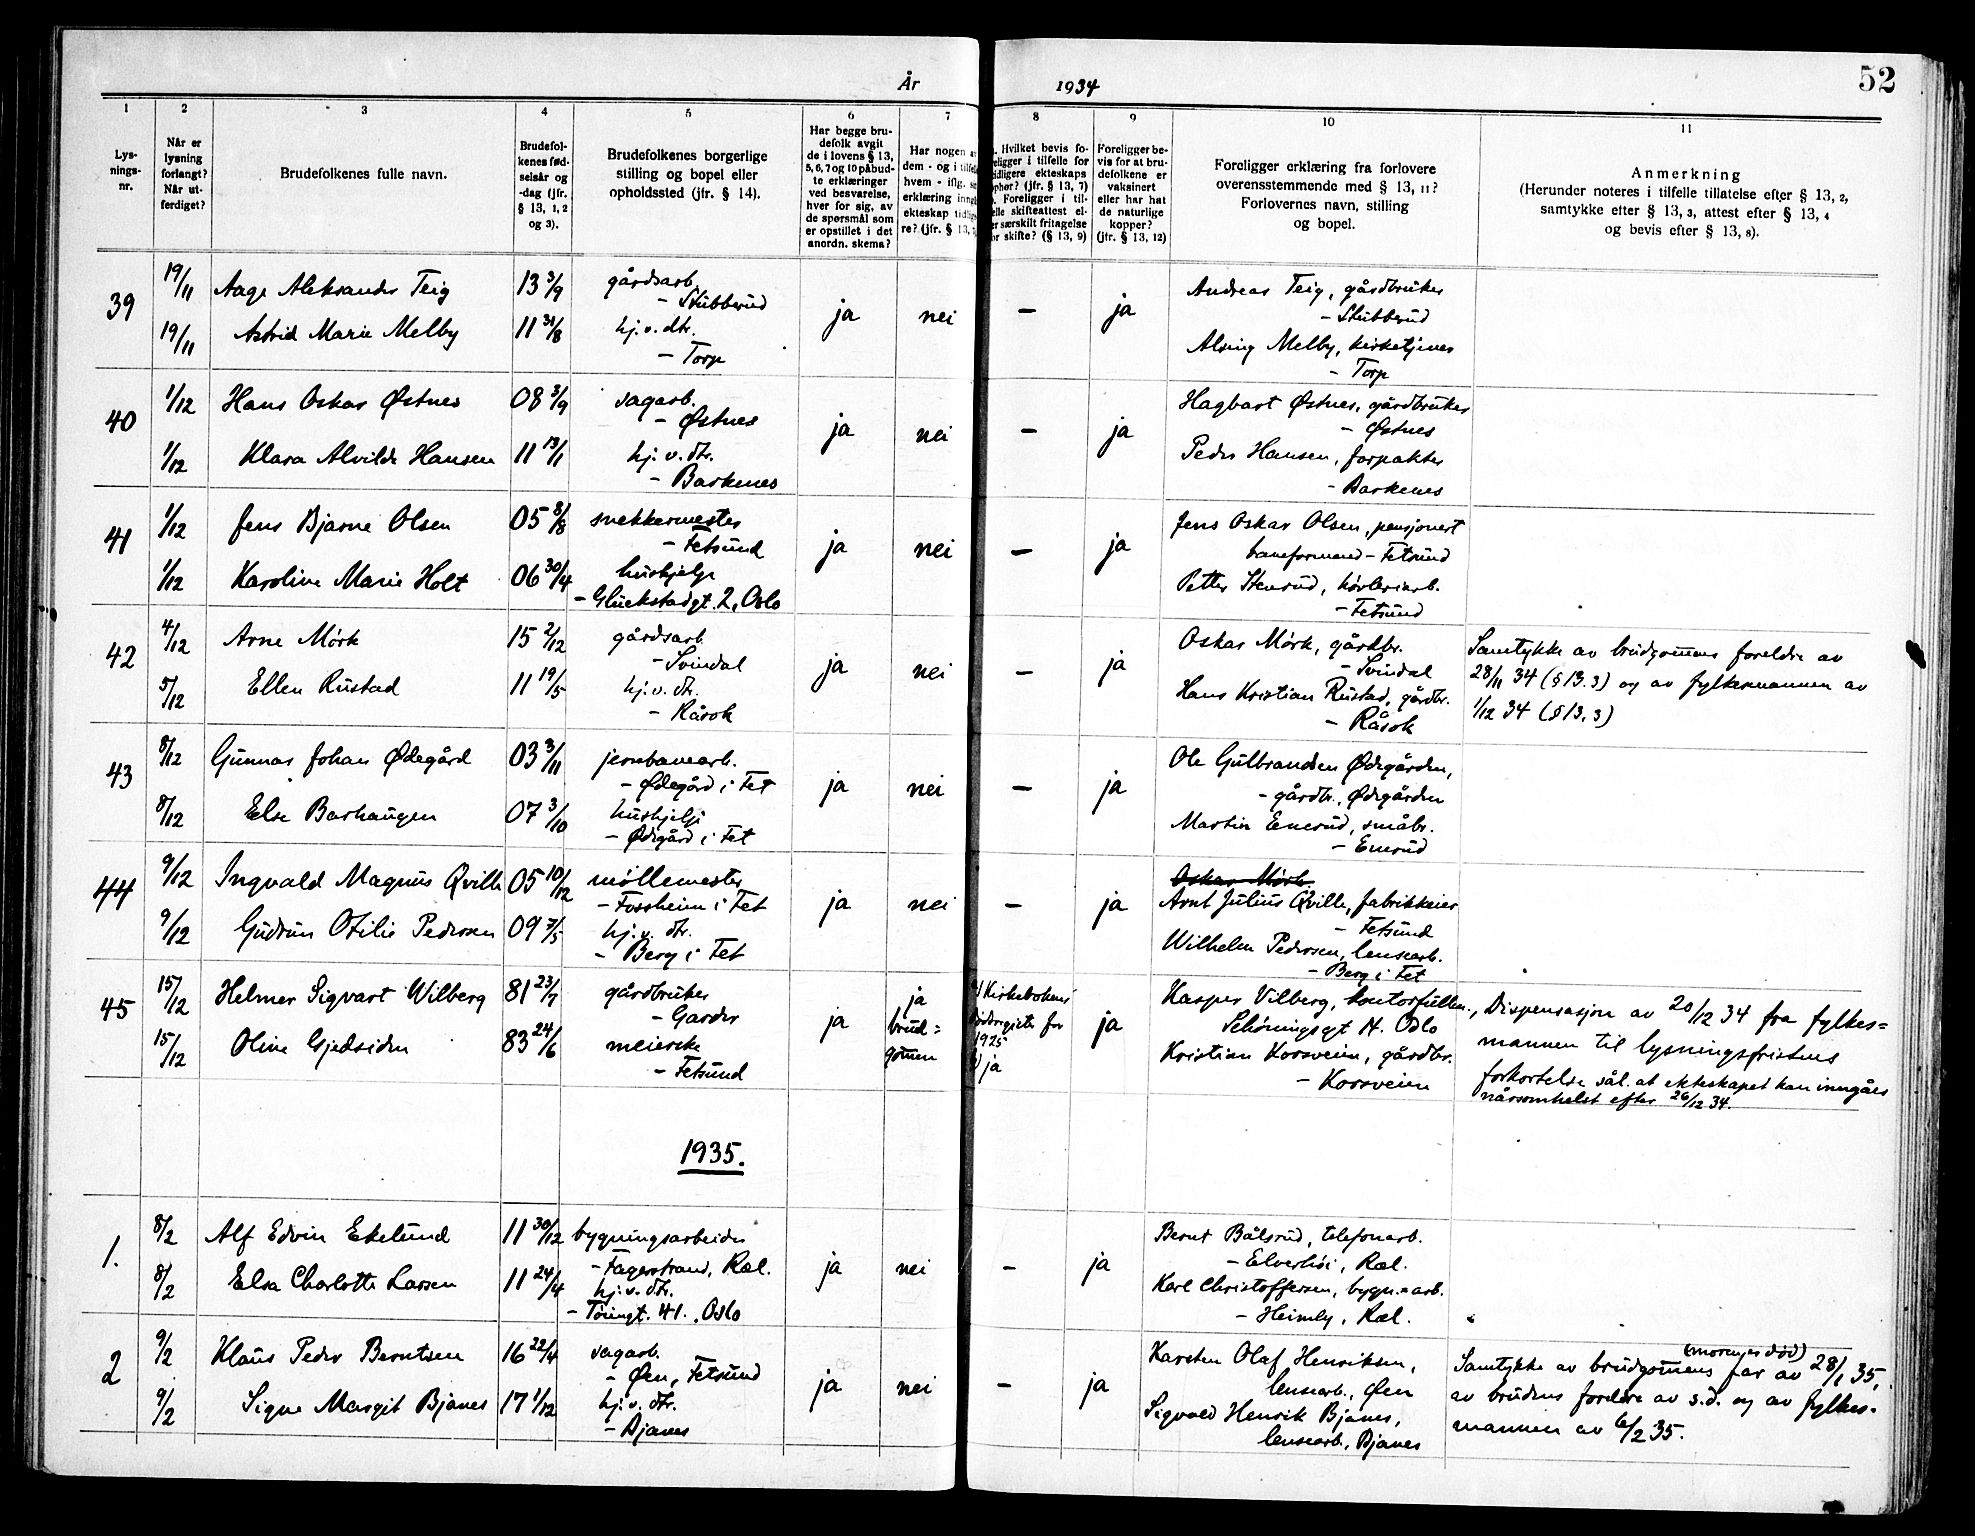 År 1934
52
1 2 3 4 5 6 7 8 9 10 11
Lys-
nings-
nr.
Når er
lysning
forlangt?
Når ut-
ferdiget?
Brudefolkenes fulle navn.
Brudefol-
kenes fød-
selsår og
-dag (jfr.
§ 13, 1, 2
og 3).
Brudefolkenes borgerlige
stilling og bopel eller
opholdssted (jfr. § 14).
Har begge bru-
defolk avgit
de i lovens § 13,
5, 6, 7 og 10 påbud-
te erklæringer
ved besvarelse,
hver for sig, av
de spørsmål som
er opstillet i det
anordn. skema?
Har nogen a
dem - og i tilfelle
hvem - iflg. s
erklæring inng
ekteskap tidlig
re? (jfr. § 13,
Hvilket bevis fo-
religger i tilfelle for
tidligere ekteskaps
ophør? (jfr. § 13, 7)
Foreligger i til-
felle skifteattest el-
er særskilt fritagelse
or skifte? (§ 13, 9)
Foreligger be-
vis for at bru-
defolkene er
vaksinert
eller har hat
de naturlige
kopper?
(jfr. § 13, 12)
Foreligger erklæring fra forlovere
overensstemmende med § 13, 11?
Forlovernes navn, stilling
og bopel.
Anmerkning
(Herunder noteres i tilfelle tillatelse efter § 13, 2,
samtykke efter § 13, 3, attest efter § 13, 4
og bevis efter § 13, 8).
39 19/11 Aage Aleksander Teig 13 3/9 gårdsarb. - Stubberud ja nei - ja Andreas Teig, gårdbruker - Stubberud
19/11 Astrid Marie Melby 11 31/8 hj.v.dtr. - Torp Melby, kirketjener - Torp
40 1/12 Hans Oskar Østnes 08 3/9 sagarb. - Østnes ja nei - ja Hagbart Østnes, gårdbruker - Østnes
1/12 Klara Alvilde Hansen 11 13/1 hj.v.dtr. - Barkenes Peder Hansen, forpakter - Barkenes
41 1/12 Jens Bjarne Olsen 05 8/8 snekkermester - Fetsund ja nei - ja Jens Oskar Olsen, pensjonert baneformand - Fetsund
1/12 Karoline Marie Holt 06 30/4 hushjelp - Glückstadgt. 2, Oslo Petter Stensrud, høvleriarb. - Fetsund
42 4/12 Arne Mørk 15 2/12 gårdsarb. - Svindal ja nei - ja Oskar Mørk, gårdbr. - Svindal Samtykke av brudgommens foreldre av
5/12 Ellen Rustad 11 19/5 hj.v.dtr. - Råsok Hans Kristian Rustad, gårdbr. - Råsok 28/11 34 (§ 13.3) og av fylkesmannen av
1/12 34 (§ 13.3)
43 8/12 Gunnar Johan Ødegård 03 3/11 jernbanearb. - Ødegård i Fet ja nei - ja Ole Gulbrandsen Ødegården, - gårdbr., Ødegården
8/12 Else Barhaugen 07 3/10 hushjelp - Ødegård i Fet Martin Emerud, småbr. - Emerud
44 9/12 Ingvald Magnus Qville 05 10/12 møllemester - Fossheim i Fet ja nei - ja Oskar Mørk
Arnt Julius Qville, fabrikkeier - Fetsund
9/12 Gudrun Otilie Pedersen 09 7/5 hj.v.dtr. - Berg i Fet Wilhelm Pedersen, lensearb. - Berg i Fet
45 15/12 Helmer Sigvart Wilberg 81 23/7 gårdbruker - Garder ja ja brud=gommen Kirkebokens dødsregister for 1925 ja ja Kasper Vilberg, kontorfullm., Schøningsgt 14. Oslo Dispensasjon av 20/12 34 fra fylkes=
15/12 Oline Gjedsiden 83 24/6 meierske - Fetsund Kristian Korsveien, gårdbr. - Korsveien mannen til lysningsfristens
forkortelse sål. at ekteskapet kan inngåes
nårsomhelst efter 26/12 34.
1935.
1. 8/2 Alf Edvin Ekelund 11 30/12 bygningsarbeider - Fagerstrand, Ræl. ja nei - ja Bernt Bålsrud, telefonarb. - Elverhøi, Ræl.
8/2 Elsa Charlotte Larsen 11 24/4 hj.v.dtr. - Tøiengt. 41., Oslo Karl Christoffersen, bygn.=arb. - Heimly, Ræl.
2 9/2 Klaus Peder Berntsen 16 22/4 sagarb. - Øen, Fetsund ja nei - ja Karsten Olaf Henriksen, lensearb., Øen Samtykke av brudgommens far (moren er død) av 28/1 35,
9/2 Signe Margit Bjanes 17 1/12 hj.v.dtr. - Bjanes Sigvald Henrik Bjanes, lensearb., Bjanes av brudens foreldre av s.d. og av fylkes-
mannen av 6/2 35.